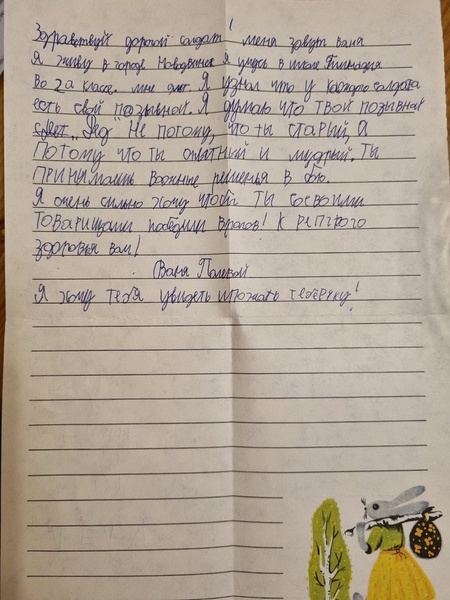 Здравствуй дорогой солдат! меня зовут ваня
Я живу в городе Новодвинск я учусь в школе Гимназия
Во 2а классе. мне 8лет. Я узнал что у каждого солдата
есть свой позывной. Я думаю что твой позывной
„Дед" Не потому, что ты старый, А
Потому что ты опытный и мудрый. Ты
ПРИНИмаешь военные решенья в бою.
Я очень сильно хочу чтобы ТЫ сосвоими
Товарищами победили врагов! Крепкого
здоровья вам!
Ваня Полевой
Я хочу тебя увидеть ипожать теберуку!